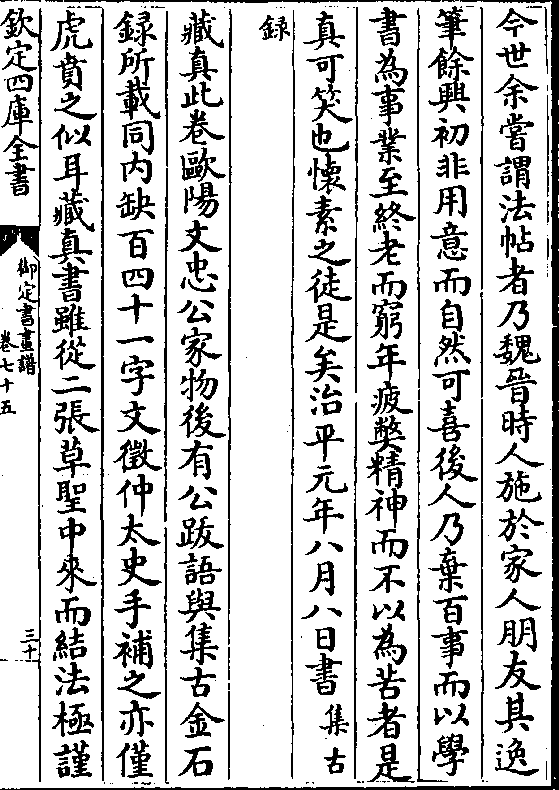 今世余嘗謂法帖者乃魏晉時人施於家人朋友其逸
筆餘興初非用意而自然可喜後人乃棄百事而以學
書為事業至終老而窮年疲獘精神而不以為苦者是
真可笑也懷素之徒是矣治平元年八月八日書集古
録
藏真此卷歐陽文忠公家物後有公跋語與集古金石
録所載同内缺百四十一字文徵仲太史手補之亦僅
虎賁之似耳藏真書雖從二張草聖中來而結法極謹
欽定四庫全書
御定書畫譜
卷七十五
三十